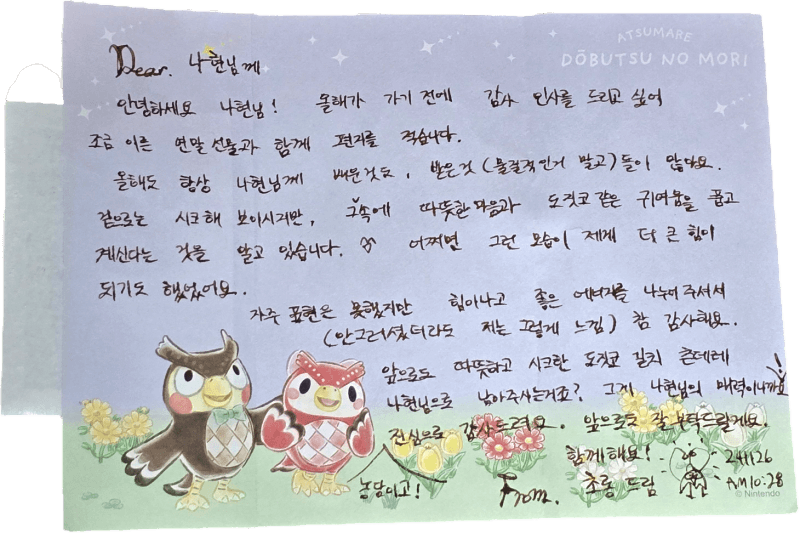 ATSUMARE
DŌBUTSU NO MORI
Dear. 나현님께
안녕하세요 나현님! 올해가 가기 전에 감사 인사를 드리고 싶어
조금 이른 연말 선물과 함께 편지를 적습니다.
올해도 항상 나현님께 배운것도, 받은것(물질적인거 말고)들이 많아요.
겉으로는 시크해 보이시지만, 그속에 따뜻한 마음과 도짓코 같은 귀여움을 품고
계신다는 것을 알고 있습니다. 어쩌면 그런 모습이 제게 더 큰 힘이
되기도 했었어요.
자주 표현은 못했지만 힘이나고 좋은 에너지를 나누어 주셔서
(안그러셨더라도 저는 그렇게 느낌) 참 감사해요.
앞으로도 따뜻하고 시크한 도짓코 갈치 츤데레
나현님으로 남아주시는거죠? 그게 나현님의 매력이니까요!
진심으로 감사드려요. 앞으로도 잘 부탁드릴게요.
농담이고!
함께해요! 241126
From. 초롱 드림 AM10:28
© Nintendo